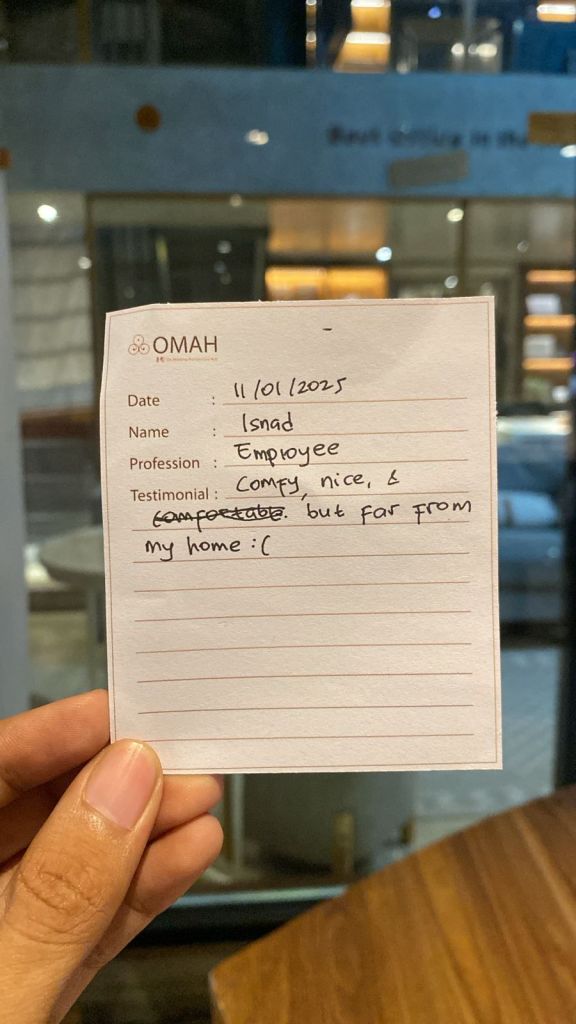 Best Office in the
OMAH
Date : 11/01/2025
Name : Isnad
Profession : Employee
Testimonial : Comfy, nice, &
comfortable. but far from
my home :(